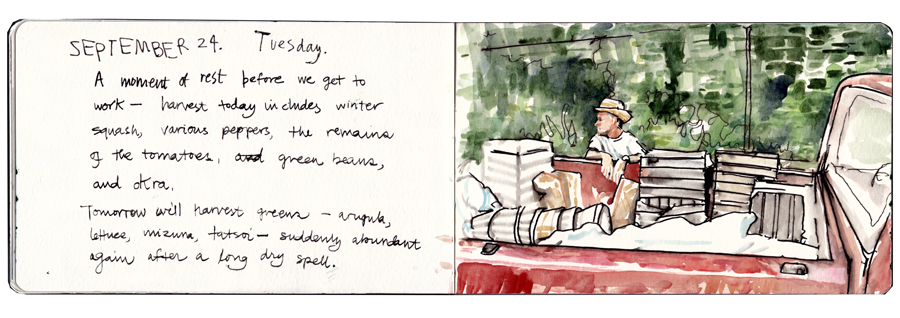 SEPTEMBER 24. Tuesday.
A moment of rest before we get to
work – harvest today includes winter
squash, various peppers, the remains
of the tomatoes, and green beans,
and okra.
Tomorrow we'll harvest greens – arugula,
lettuce, mizuna, tatsoi – suddenly abundant
again after a long dry spell.